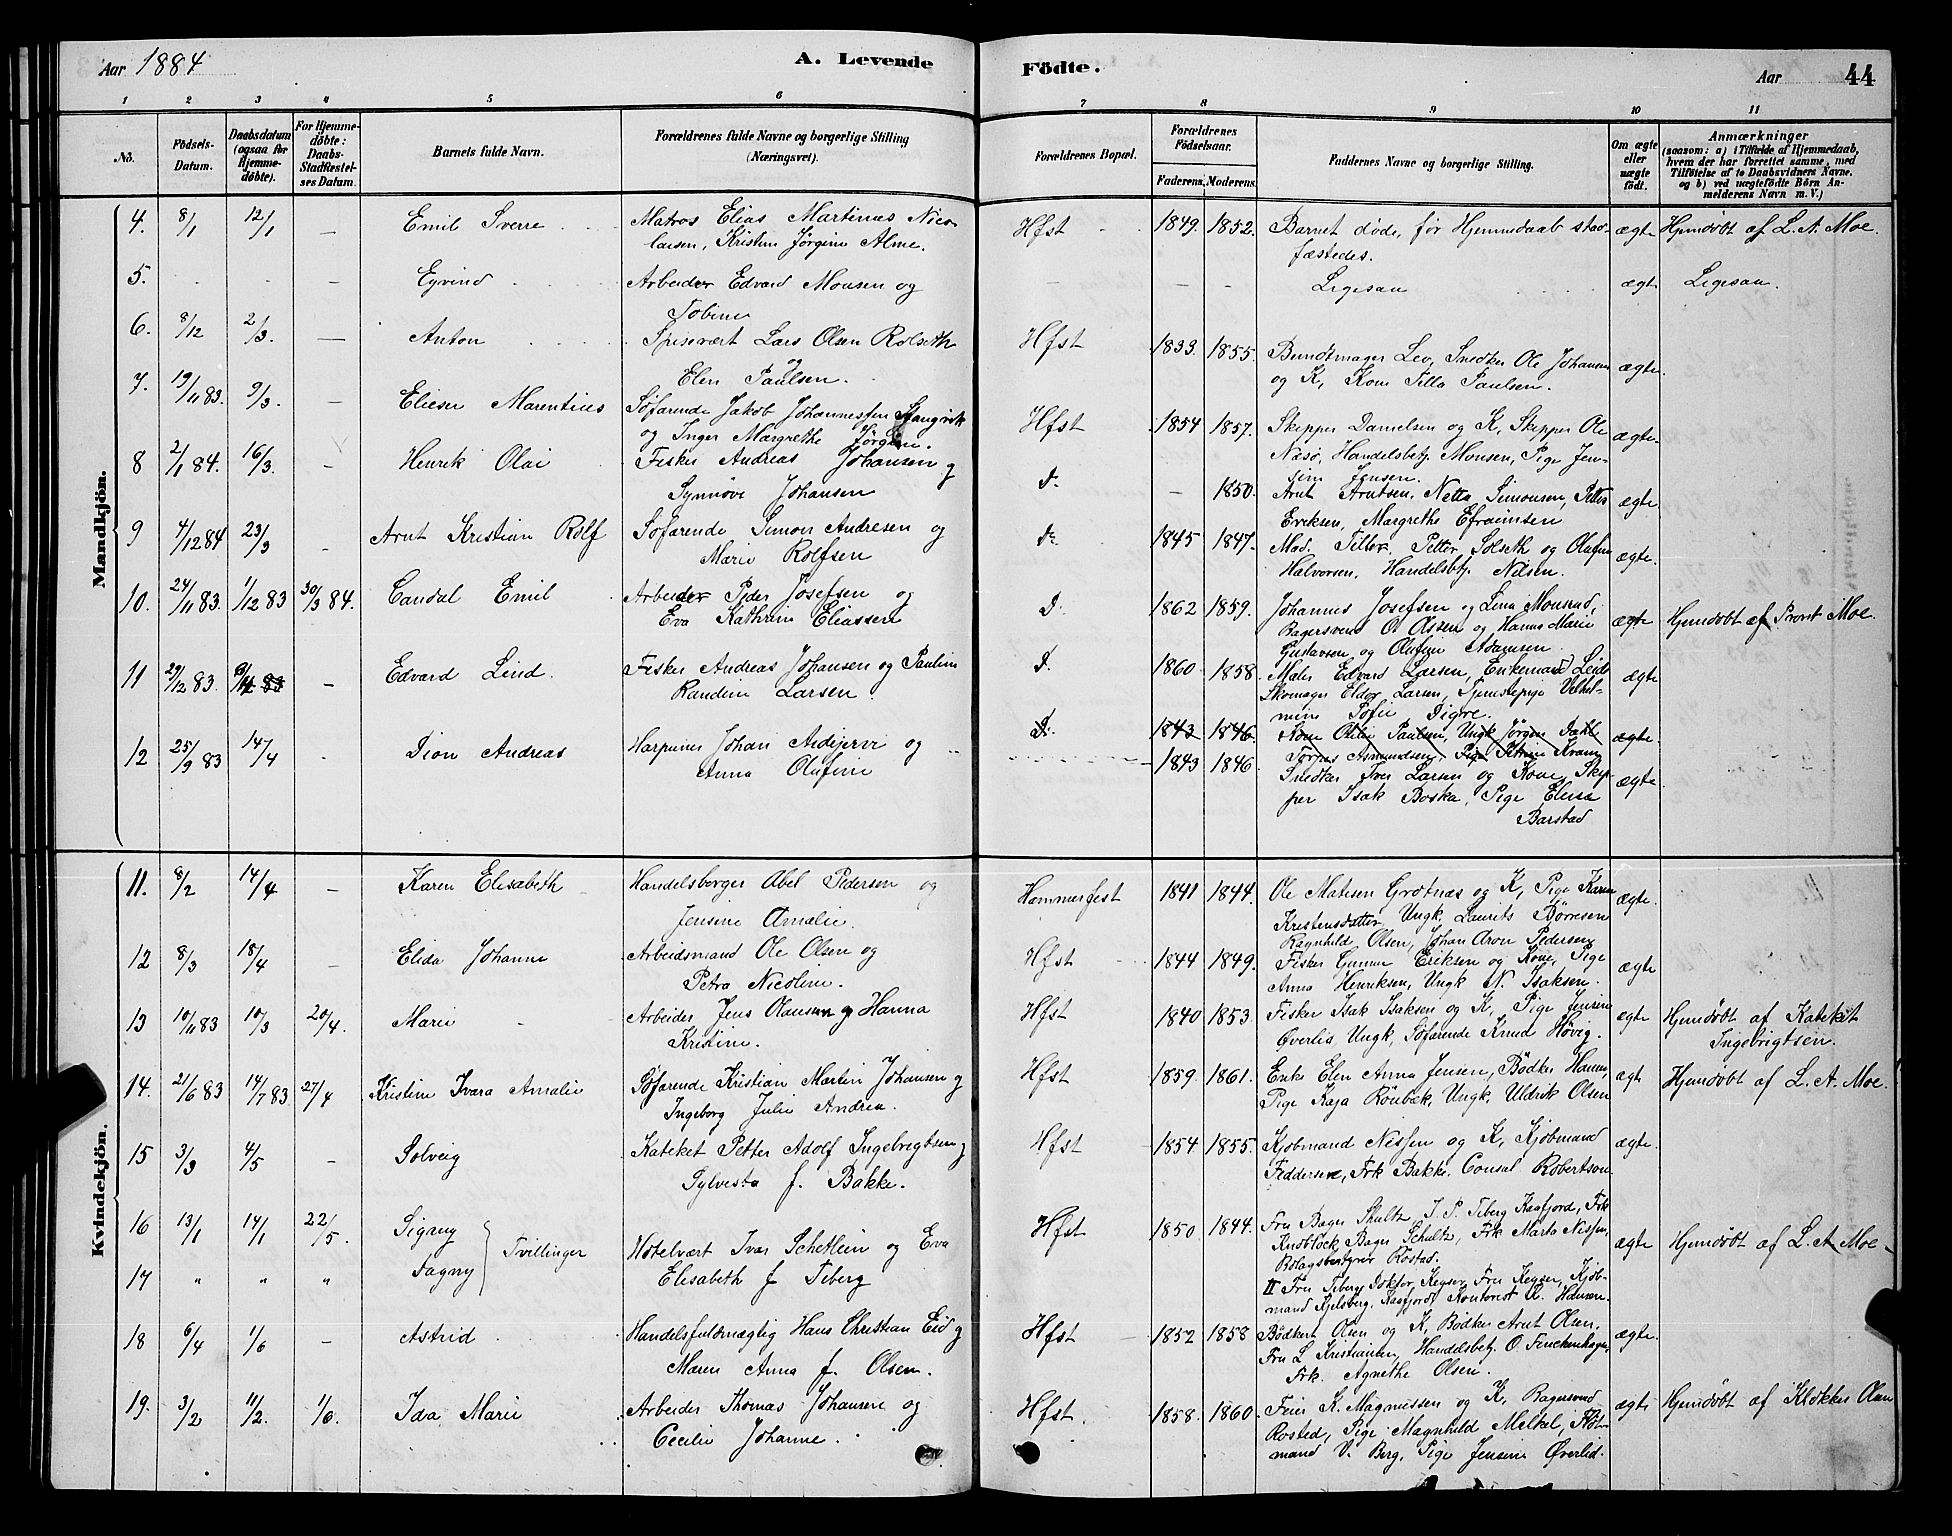 Aar 1884
A. Levende
Födte.
Aar
44
1 2 3 4 5 6 7 8 9 10 11
No.
Födsels-Datum.
Daabsdatum (ogsaa for Hjemme-döbte).
For Hjemme-döbte: Daabs-Stadfæstel-ses Datum.
Barnets fulde Navn.
Forældrenes fulde Navne og borgerlige Stilling (Næringsvei).
Forældrenes Bopæl.
Forældrenes Födselsaar.
Faderens. Moderens.
Faddernes Navne og borgerlige Stilling.
Om ægte eller uægte födt.
Anmærkninger
(saasom: a) i Tilfælde af Hjemmedaab, hvem der har forrettet samme, med Tilföielse af to Daabsvidners Navne. og b) ved uægtefödte Börn An-melderens Navn m. V.)
Mandkjön.
4. 8/1 12/1 — Emil Sverre Matros Elias Martinus Nico- Hfst 1849. 1852. Barnet döde, før Hjemmedaab stad- ægte Hjemdöbt af L. A. Moe.
laisen, Kristine Jørgine Alme. fæstedes.
5. — Eyvind Arbeider Edvard Monsen og — — — Ligesaa ægte Ligesaa.
Tobine
6. 8/12 2/3. — Anton Spisevært Lars Olsen Rolseth Hfst 1833. 1855. Bundtmager Lev, Snedker Ole Johansen ægte.
og Elen Paulsen. og K, Kone Tilla Paulsen.
7. 19/11 83. 9/3. — Elieser Marentius Söfarende Jakob Johannessen Stangvik Hfst 1854 1857. Skipper Danielsen og K, Skipper Ole ægte.
og Inger Margrethe Jörgine. Næsö, Handelsbetj. Monsen, Pige Jen-
sine Jensen.
8 2/1 84. 16/3. — Henrik Olai Fisker Andreas Johansen og D. — 1850. Arnt Arntsen, Netta Simonsen, Petter ægte
Synnöve Johansen Eriksen, Margrethe Efraimsen
9 4/12 84 23/3 — Arnt Kristian Rolf Söfarende Simon Andresen og D. 1845 1847. Mad. Tiller, Petter Solseth og Olufine ægte.
Marie Rolfsen Halvorsen, Handelsbetj. Nilsen.
10. 24/11 83. 1/12 83 30/3 84. Candal Emil Arbeider Peder Josefsen og D. 1862 1859. Johannes Josefsen og Lina Monsrud, ægte Hjemdöbt af Provst Moe.
Eva Kathrine Eliassen Bagersvend O. Olsen og Hanna Marie
Gustavsen og Olufine Adamsen.
11 29/12 83. — Edvard Lind. Fisker Andreas Johansen og Pauline D. 1860 1858. Maler Edvard Larsen, Enkemand Leid- ægte
Randine Larsen Skomager Eldor Larsen, Tjenestepige Vilhel-
mine Sofie Digre.
D. 1843 1846. Kone Otilie Paulsen, Ungk Jörgen Dahl ægte.
12 25/9 83 14/4 Dion Andreas Harpuner Johan Aidijervi og 1843 1846 Torger Asmundsen, Pige Petrine Kram
Anna Olufine Snedker Iver Larsen og Kone, Skip- ægte
per Isak Boska, Pige Elisa
Barstad
Kvindekjön.
11. 8/2 14/4 — Karen Elisabeth Handelsborger Abel Pedersen og Hammerfest 1841 1844. Ole Matisen Grötnæs og K, Pige Karen ægte.
Jensine Amalie. Kristensdatter, Ungk. Laurits Börresen
Ragnhild Olsen, Johan Aron Pedersen
12 8/3 18/4 — Elida Johanne Arbeidsmand Ole Olsen og Hfst 1844 1849. Fisker Gunnar Eriksen og Kone, Pige ægte
Petra Nicoline. Anna Henriksen, Ungk N. Isaksen.
13 10/11 83 10/3 20/4. Marie Arbeider Jens Olausen og Hanna Hfst 1840 1853. Fisker Isak Isaksen og K, Pige Jensine ægte Hjemdöbt af Kateket
Kristine. Øverlis, Ungk, Söfarende Knud Hövig. Ingebrigtsen.
14. 21/6 83 14/7 83 27/4 Kristine Ivara Amalie Söfarende Kristian Martin Johansen og Hfst 1859. 1861. Enke Elen Anna Jensen, Bödker Hansen, ægt Hjemdöbt af L. A. Moe.
Ingeborg Julie Andrea. Pige Kaja Rönbæk, Ungk. Uldrik Olsen
15 3/3 4/5 — Solveig Kateket Petter Adolf Ingebrigtsen og Hfst 1854 1855. Kjöbmand Nissen og K, Kjöbmand ægte.
Sylvesta f. Bakke. Feddersen, Frk Bakke. Consul Robertson.
16 13/1 14/1 22/5. Signy Tvillinger Hotelvært Ivar Schetlein og Eva Hfst 1850 1844. Fru Bager Shultz, J. P. Tiberg Kaafjord, Frk ægte Hjemdöbt af L. A. Moe.
Knoblock, Bager Schultz, Frk Marta Nissen,
Bolagsbestyrer Rostad.
17 " " " Dagny Elisabeth f Tiberg II Fru Tiberg, Doktor Keyser, Fru Keyser, Kjöb-
mand Kjelsberg, Kaafjord, Kontorist A. Hansen.
18 6/4 1/6 — Astrid Handelsfuldmægtig Hans Christian Eid og Hfst 1852 1858 Bödker Olsen og K, Bödker Arnt Olsen, ægte.
Maren Anna f. Olsen. Fru L Kristiansen, Handelsbetj. O. Finckenhagen,
Frk. Agnethe Olsen.
19. 3/2 11/2. 1/6. Ida Marie Arbeider Thomas Johansen og Hfst. 1858. 1860. Feier K. Magnussen og K, Bagersvend ægte Hjemdöbt af Klokker Olsen
Cecilie Johanne. Rosted, Pige Magnhild Melkel, Flöt-
mand V. Berg, Pige Jensine Øverlid.